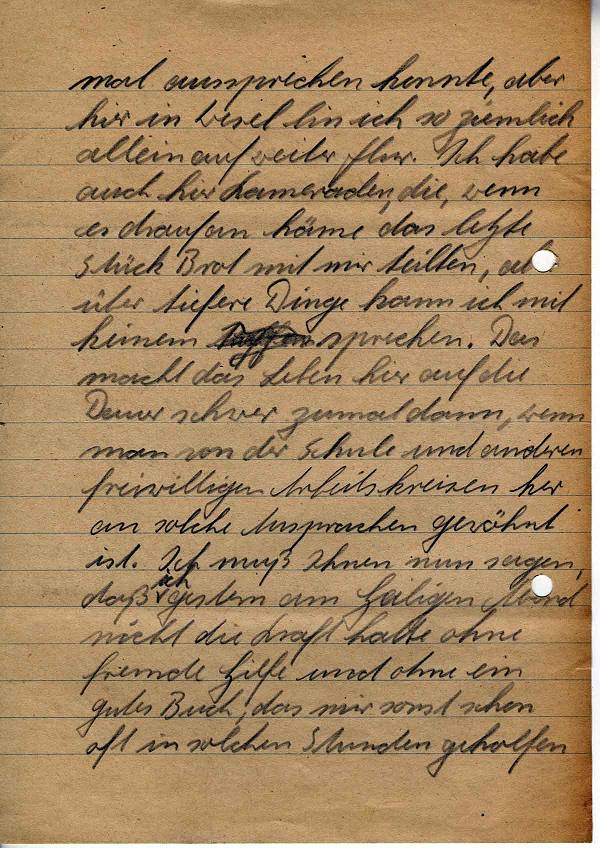 mal aussprechen konnte, aber
hir in Wesel bin ich so ziemlich
allein auf weiter flur. Ich habe
auch hir Kameraden, die, wenn
es drauf an käme das letzte
Stück Brot mit mir teilten,
über tiefere Dinge kann ich mit
keinem sprechen. Das
macht das Leben hier auf die
Dauer schwer zumal dann, wenn
man von der Schule und anderen
freiwilligen Arbeitskreisen her
an solche Aussprachen gewöhnt
ist. Ich muß Ihnen nun sagen,
daß ich gestern am Heiligen Abend
nicht die Kraft hatte ohne
fremde Hilfe und ohne ein
gutes Buch, das mir sonst schon
oft in solchen Stunden geholfen